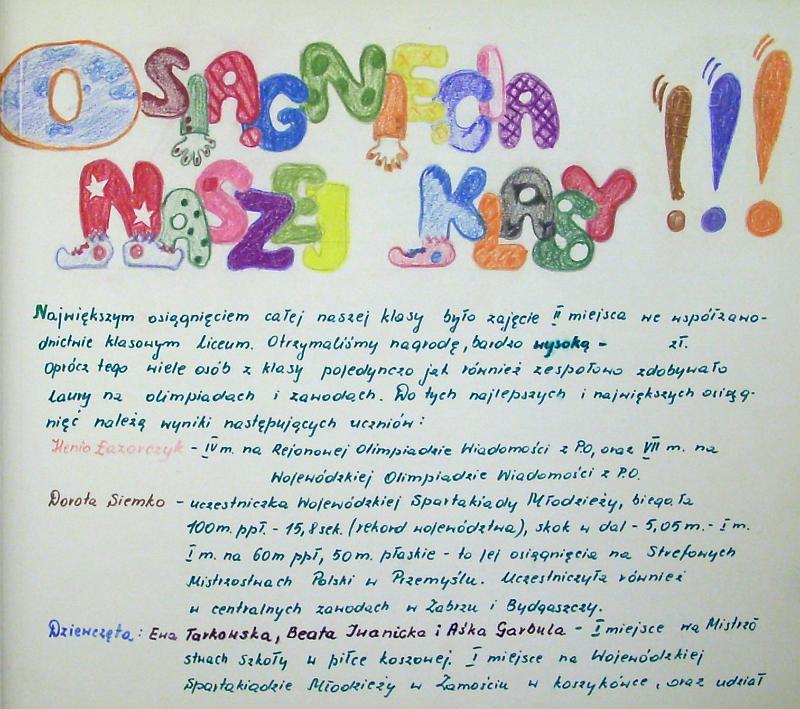 OSIĄGNIĘCIA !!!
NASZEJ KLASY
Największym osiągnięciem całej naszej klasy było zajęcie II miejsca we współzawo-
dnictwie klasowym Liceum. Otrzymaliśmy nagrodę, bardzo wysoką - zł.
Oprócz tego wiele osób z klasy pojedynczo jak również zespołowo zdobywało
laury na olimpiadach i zawodach. Do tych najlepszych i największych osią-
gnięć należą wyniki następujących uczniów:
Henio Łazorczyk - IV m. na Rejonowej Olimpiadzie Wiadomości z P.O, oraz VII m. na
Wojewódzkiej Olimpiadzie Wiadomości z P.O.
Dorota Siemko - uczestniczka Wojewódzkiej Spartakiady Młodzieży, biegała
100m. ppł. - 15,8 sek. (rekord województwa), skok w dal - 5,05 m. - I m.
I m. na 60m ppł, 50m. płaskie - to jej osiągnięcia na Strefowych
Mistrzostwach Polski w Przemyślu. Uczestniczyła również
w centralnych zawodach w Zabrzu i Bydgaszczy.
Dziewczęta: Ewa Tarkowska, Beata Iwanicka i Aśka Garbula - I miejsce na Mistrzo
stwach Szkoły w piłce koszowej. I miejsce na Wojewódzkiej
Spartakiadzie Młodzieży w Zamościu w koszykówce, oraz udział